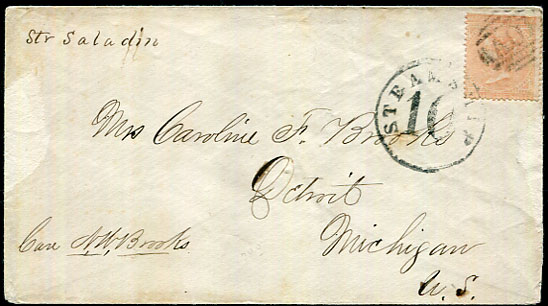 Str Saladin
STEAMSHIP
10
Mrs Caroline F. Brooks
Detroit
Michigan
U.S.
Care N.W. Brooks